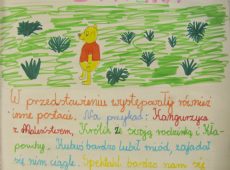 W przedstawieniu występowały również
inne postacie. Na przykład: Kangurzyca
z Maleństwem, Królik ze swoją rodzinką i Kła-
pouchy. Kubuś bardzo lubił miód, zajadał
się nim ciągle. Spektakl bardzo nam się